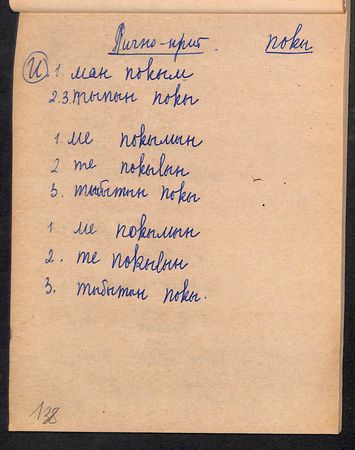 Лично-прит. покы
И. 1. ман покым
2.3. тыпын покы
1. ме покымын
2. те покывын
3. тыбытын покы
1. ме покымын
2. те покывын
3. тыбытын покы.
138